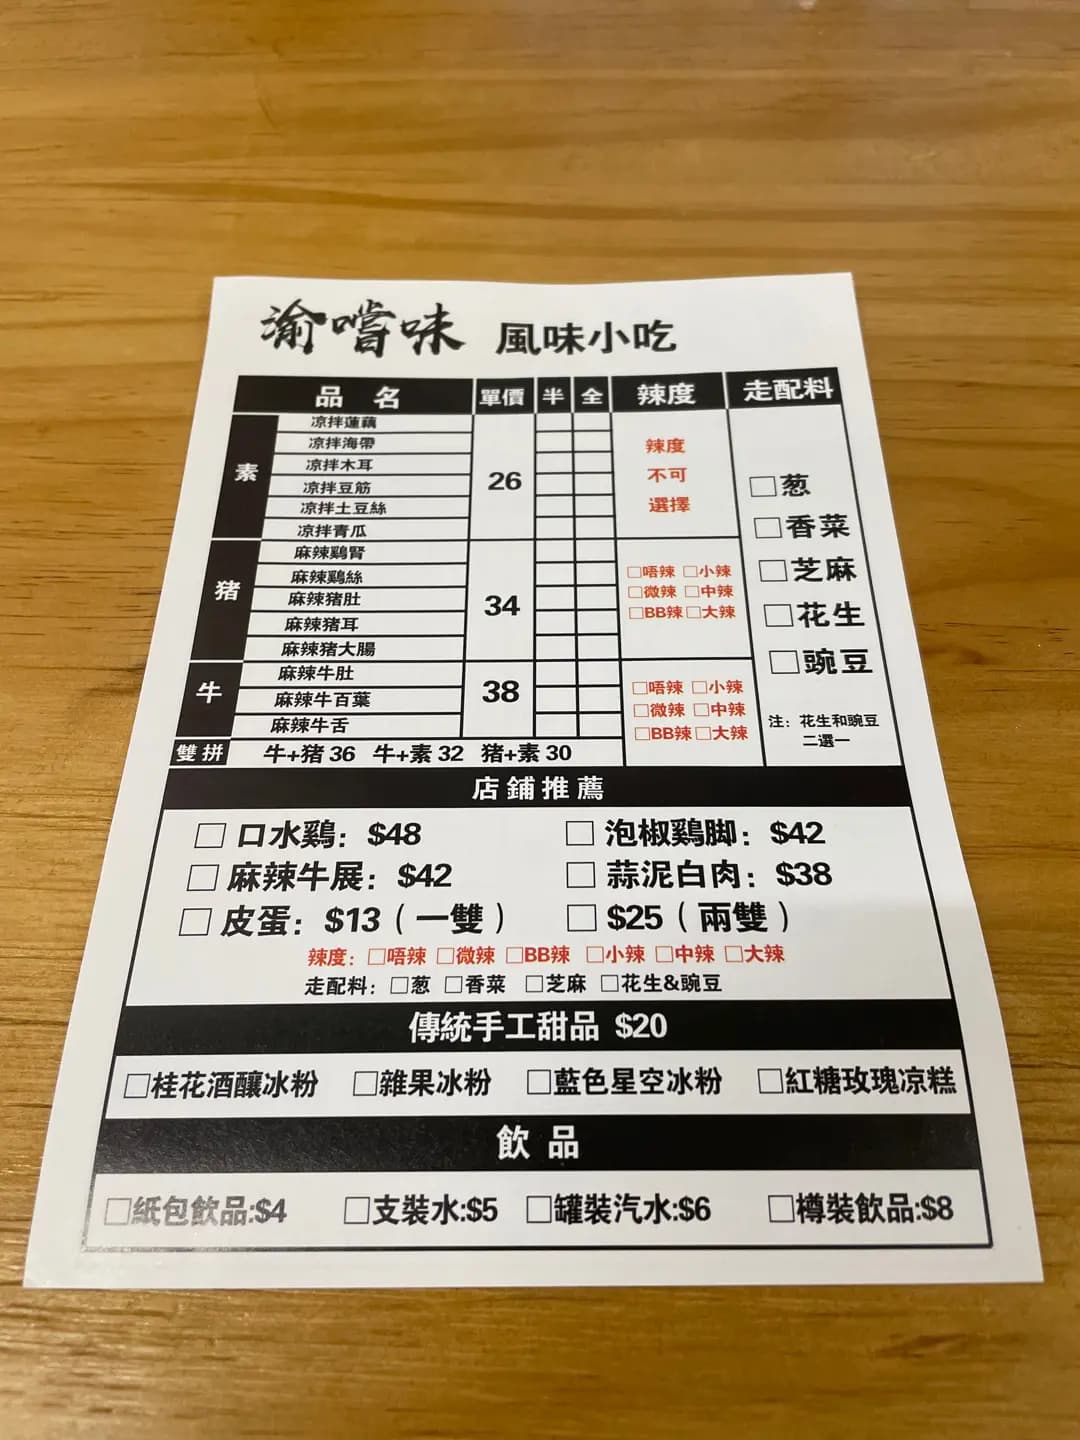 渝嚐味 風味小吃
品名 單價 半 全 辣度 走配料
素
凉拌蓮藕
凉拌海帶
凉拌木耳
凉拌豆筋
凉拌土豆絲
凉拌青瓜
26
辣度
不可
選擇
猪
麻辣鷄腎
麻辣鷄絲
麻辣猪肚
麻辣猪耳
麻辣猪大腸
34
□唔辣 □小辣
□微辣 □中辣
□BB辣 □大辣
牛
麻辣牛肚
麻辣牛百葉
麻辣牛舌
38
□唔辣 □小辣
□微辣 □中辣
□BB辣 □大辣
□葱
□香菜
□芝麻
□花生
□豌豆
注：花生和豌豆
二選一
雙拼 牛+猪 36 牛+素 32 猪+素 30
店鋪推薦
□ 口水鷄：$48 □ 泡椒鷄脚：$42
□ 麻辣牛展：$42 □ 蒜泥白肉：$38
□ 皮蛋：$13（一雙） □ $25（兩雙）
辣度：□唔辣 □微辣 □BB辣 □小辣 □中辣 □大辣
走配料：□葱 □香菜 □芝麻 □花生&豌豆
傳統手工甜品 $20
□桂花酒釀冰粉 □雜果冰粉 □藍色星空冰粉 □紅糖玫瑰凉糕
飲品
□紙包飲品:$4 □支裝水:$5 □罐裝汽水:$6 □樽裝飲品:$8